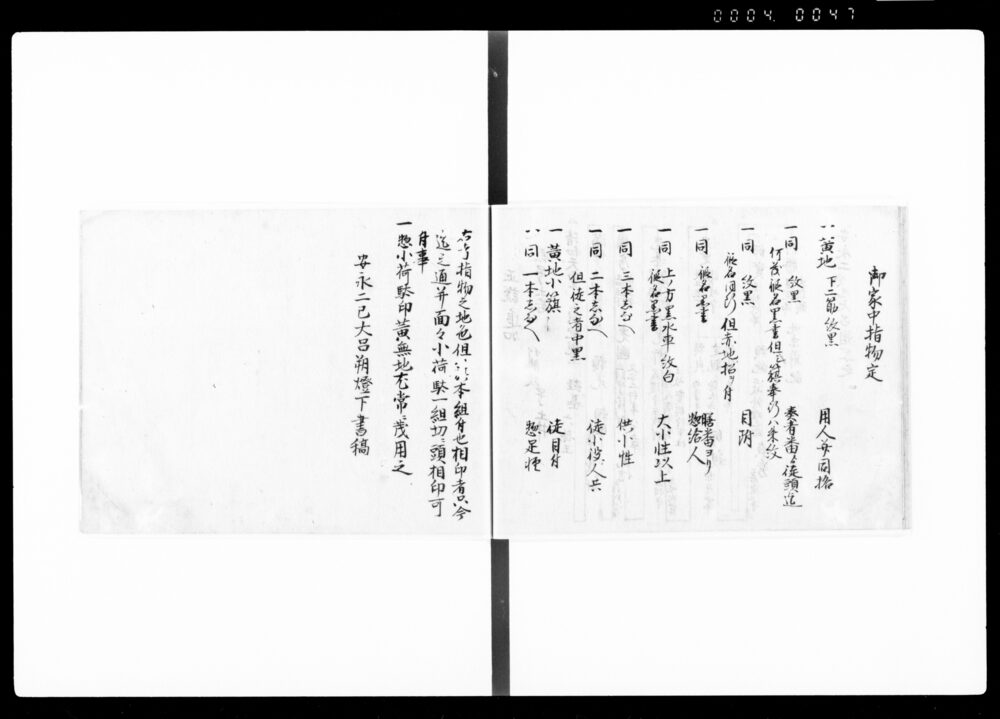 0004. 0047
御家中指物定
一黄地 下二筋紋黒 用人安同格
一同 紋黒 奏者番ゟ徒頭迄
何茂仮名黒書但 籏奉行ハ朱紋
一同 紋黒 目附
仮名同行 但赤地招ヲ付
一同 仮名黒書 膳番ヨリ惣給人
一同 上ノ方黒水車紋白 大小性以上
仮名黒書
一同 三本しなへ 供小性
一同 二本しなへ 徒小役人共
但徒之者中黒
一黄地小籏 徒目付
一同 一本しなへ 惣足軽
右指物之地色但 本組付也相印者只今
迄之通并面々小荷駄一組切ニ頭相印可
付事
一惣小荷駄印黄無地尤常ニ茂用之
安永二巳大呂朔燈下書稿